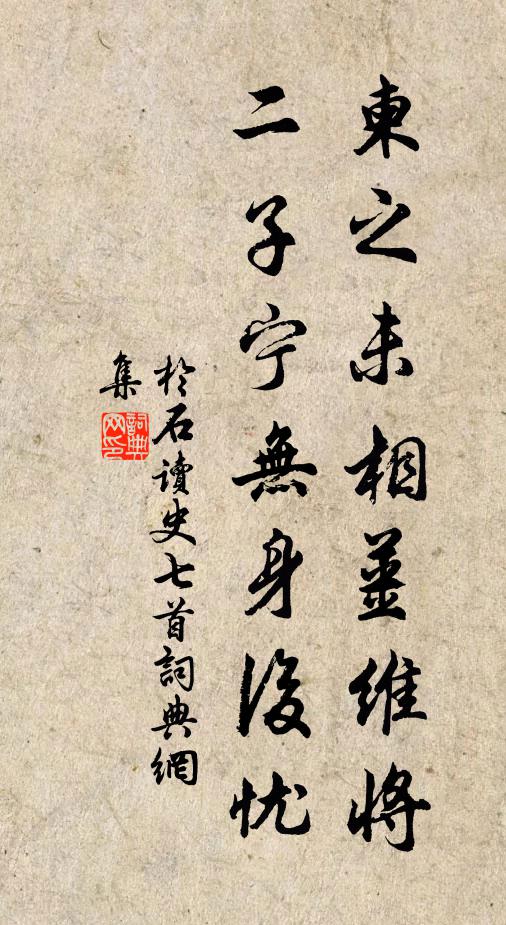 東之未相薑維將
二子宁無身後忧
於石讀史七首詞典網
集
詞典網印